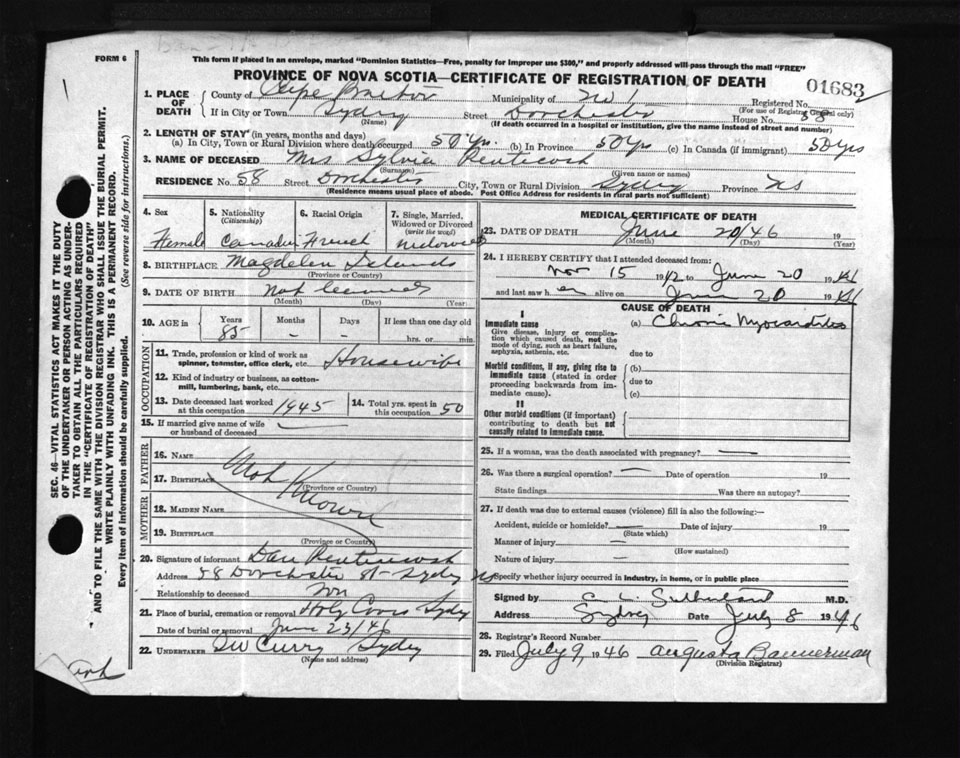 FORM 6
This form if placed in an envelope, marked "Dominion Statistics—Free, penalty for improper use $300," and properly addressed will pass through the mail "FREE"
PROVINCE OF NOVA SCOTIA—CERTIFICATE OF REGISTRATION OF DEATH
01683
1. PLACE OF DEATH
County of Cape Breton Municipality of No 1 Registered No.
(For use of Registrar General only)
If in City or Town Sydney Street Dorchester House No. 58
(Name) (If death occurred in a hospital or institution, give the name instead of street and number)
2. LENGTH OF STAY (in years, months and days)
(a) In City, Town or Rural Division where death occurred 50 Yrs. (b) In Province 50 Yrs (c) In Canada (if immigrant) 50 Yrs
3. NAME OF DECEASED Mrs Sylvia Pentecost
(Surname) (Given name or names)
RESIDENCE No. 58 Street Dorchester City, Town or Rural Division Sydney Province NS
(Residence means usual place of abode. Post Office Address for residents in rural parts not sufficient)
4. Sex Female
5. Nationality (Citizenship) Canadian
6. Racial Origin French
7. Single, Married, Widowed or Divorced (write the word) Widowed
8. BIRTHPLACE Magdelen Islands
(Province or Country)
9. DATE OF BIRTH Not
(Month) (Day) (Year)
10. AGE in Years 85 Months - Days - If less than one day old hrs. or min.
OCCUPATION
11. Trade, profession or kind of work as spinner, teamster, office clerk, etc. Housewife
12. Kind of industry or business, as cotton-mill, lumbering, bank, etc.
13. Date deceased last worked at this occupation 1945
14. Total yrs. spent in this occupation 50
15. If married give name of wife or husband of deceased —
FATHER
16. NAME
17. BIRTHPLACE
(Province or Country)
Not Known
MOTHER
18. MAIDEN NAME
19. BIRTHPLACE
(Province or Country)
20. Signature of informant Dan Pentecost
Address 58 Dorchester St - Sydney NS
Relationship to deceased Son
21. Place of burial, cremation or removal Holy Cross Sydney
Date of burial or removal June 23/46
22. UNDERTAKER SW Curry Sydney
(Name and address)
MEDICAL CERTIFICATE OF DEATH
23. DATE OF DEATH June 20/46 19
(Month) (Day) (Year)
24. I HEREBY CERTIFY that I attended deceased from:
Nov 15 1942 to June 20 1946
and last saw her alive on June 20 1946
CAUSE OF DEATH
I
Immediate cause
Give disease, injury or complication which caused death, not the mode of dying, such as heart failure, asphyxia, asthenia, etc.
(a) Chronic Myocarditis
due to
Morbid conditions, if any, giving rise to immediate cause (stated in order proceeding backwards from immediate cause).
(b)
due to
(c)
II
Other morbid conditions (if important) contributing to death but not causally related to immediate cause.
25. If a woman, was the death associated with pregnancy? —
26. Was there a surgical operation? — Date of operation 19
State findings Was there an autopsy?
27. If death was due to external causes (violence) fill in also the following:-
Accident, suicide or homicide? — Date of injury 19
(State which)
Manner of injury —
(How sustained)
Nature of injury —
Specify whether injury occurred in industry, in home, or in public place
Signed by E. L. Sutherland M.D.
Address Sydney Date July 8 1946
28. Registrar's Record Number
29. Filed July 9, 1946 Augusta Bannerman
(Division Registrar)
SEC. 46—VITAL STATISTICS ACT MAKES IT THE DUTY
OF THE UNDERTAKER OR PERSON ACTING AS UNDER-
TAKER TO OBTAIN ALL THE PARTICULARS REQUIRED
IN THE "CERTIFICATE OF REGISTRATION OF DEATH"
AND TO FILE THE SAME WITH THE DIVISION REGISTRAR WHO SHALL ISSUE THE BURIAL PERMIT.
WRITE PLAINLY WITH UNFADING INK. THIS IS A PERMANENT RECORD.
Every item of information should be carefully supplied. (See reverse side for instructions.)